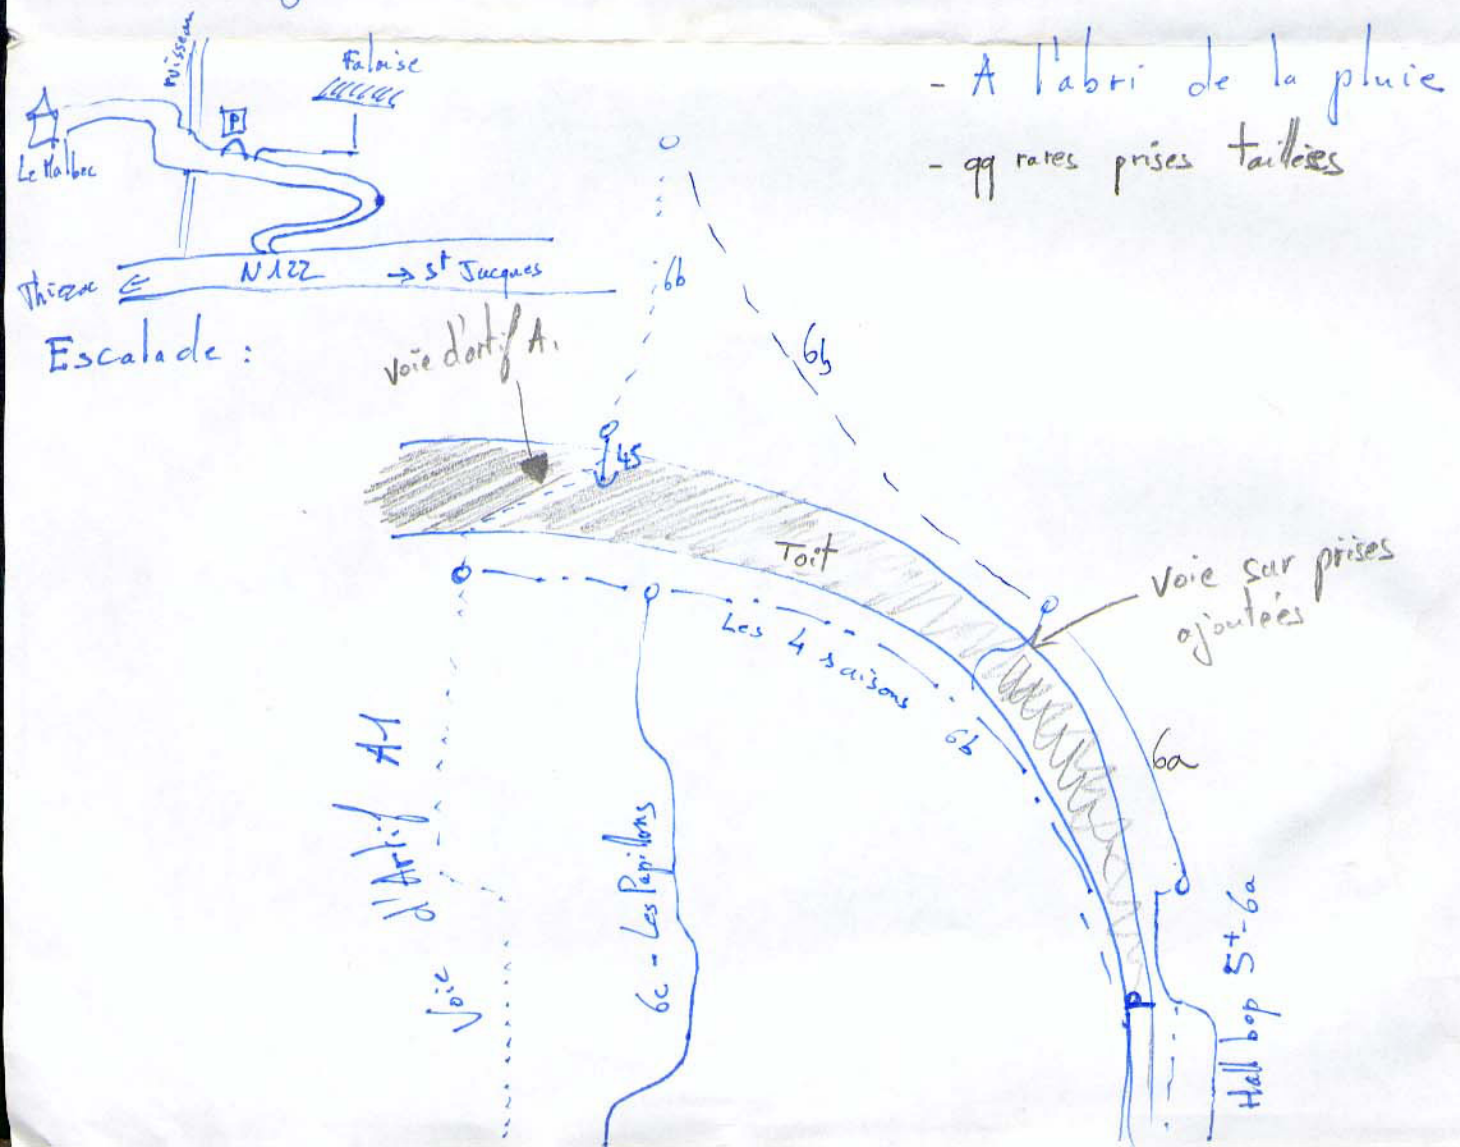 ruisseau
Falaise
P
Le Malbec
N122
→ St Jacques
Thiezac
- A l'abri de la pluie
- qq rares prises taillées
Escalade :
voie d'artif A.
6b
6b
45
Toit
voie sur prises
ajoutées
Les 4 saisons
6b
6a
Voie d'Artif A1
6c - Les Papillons
Hall bop 5+-6a